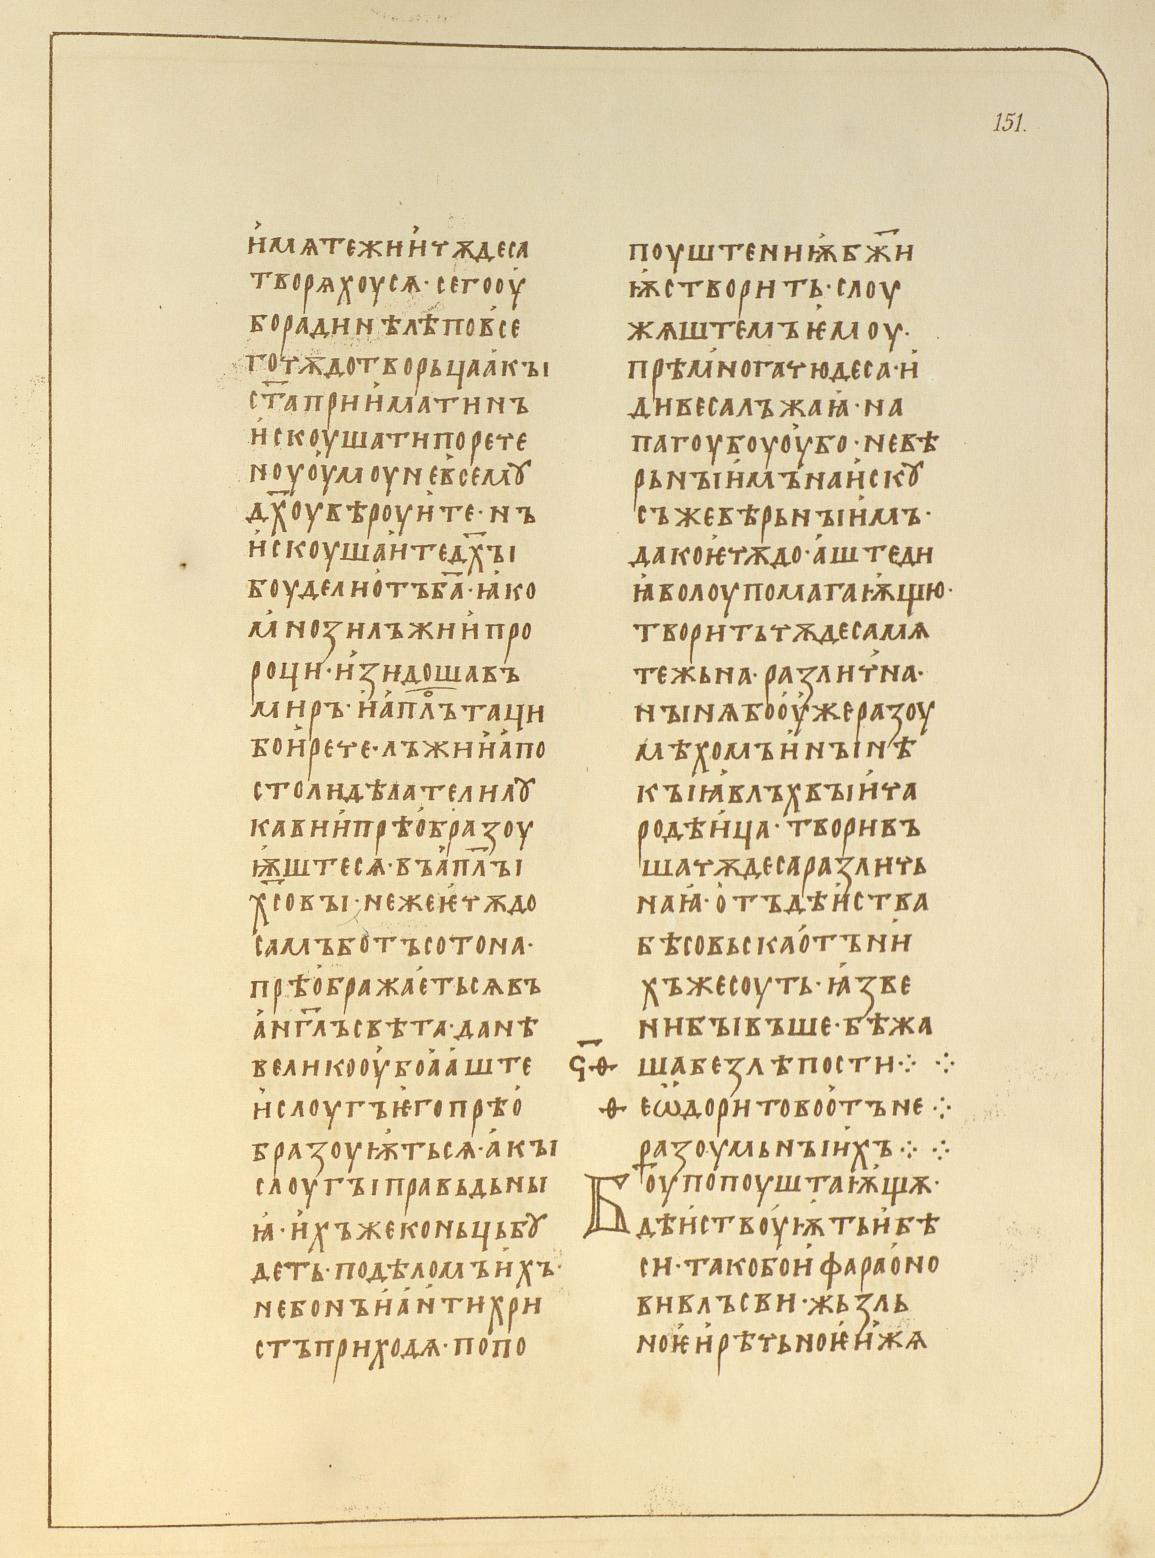 151.
и҆мѧтежни и҆ чѫдеса
творѧхоусѧ · сегооу҆
боради нѣлѣпов̾се
го чѫдотворьца а҆кꙑ
ст҃а прии҆мати нъ
и҆скоушати пореч̾е
ноуоу҆моу не в̾семꙋ
дх҃оу вѣроуи҆те · нъ
и҆скоушаи҆те дх҃ꙑ
боуде ли о҆тъ б҃а · ꙗ҆ко
м̾нози лъжии҆ про
роци · и҆зидоша въ
миръ · и҆ а҆пл҃ъ таци
бои҆ рече · лъжии҆ а҆по
столи дѣлателилꙋ
кавии҆ прѣо҆бразоу
ѭ҆штесѧ · въ а҆пл҃ꙑ
х҃совꙑ · не же ѥ҆ чѫдо
самъ бо тъ сотона ·
прѣо҆бражае҆тьсѧ въ
а҆нг҃лъ свѣта · да нѣ
велико оу҆бо а҆ а҆ште
и҆ слоугꙑ ѥ҆го прѣо҆
бразоуѭ҆тьсѧ · а҆кꙑ
слоугꙑ правьдьнꙑ
ꙗ҆ · и҆хъже коньць бꙋ
деть · по дѣломъ и҆хъ ·
небонъ и҆ а҆н̾тихри
стъ приходѧ · попо
поуштениѭ҆ бж҃и
ѭ҆ створить · слоу
жѧштемъ ѥ҆моу ·
прѣм̾нога чюдеса · и҆
дивеса лъжаꙗ҆ · на
пагоубоу оу҆бо · невѣ
рьнꙑи҆мъ на и҆скꙋ
съ же вѣрьнꙑи҆мъ ·
да коѥ҆ чѫдо · а҆ште ди
ꙗ҆волоу помагаѭ҆щю ·
творить чѫдеса мѧ
тежьна · различ̾на ·
нꙑинѧ бо оу҆же разоу
мѣхомъ и҆ нꙑинѣ
кꙑꙗ҆ влъхвꙑ и҆ ча
родѣи҆ца · творивъ
ша чѫдеса различь
наꙗ҆ · о҆тъ дѣи҆ства
бѣсовьска о҆тъ ни
хъже соуть · ꙗ҆зве
ни бꙑвъше · бѣжа
ѕ҃ ѳ ша без лѣпости ⁘ ⁘
ѳеѡ҆дорито во о҆тъ не ⁘
разоумьнꙑи҆хъ ⁘ ⁘
Б҃оу попоуштаѭ҆щѫ ·
дѣи҆ствоу҆ѭ҆ть и҆ бѣ
си · тако бо и҆ фарао҆но
ви влъсви · жьзль
ноѥ҆ и҆ рѣчьноѥ҆ и҆ жѧ